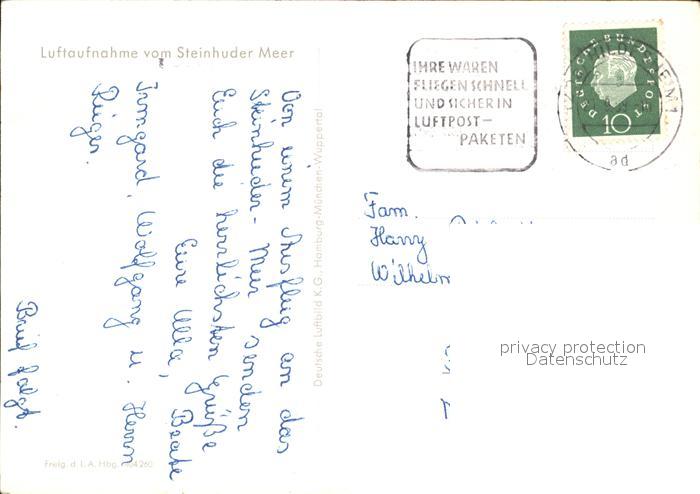 Luftaufnahme vom Steinhuder Meer
Von einem Ausflug an das
Steinhuder-Meer senden
Euch die herzlichsten Grüße
Eure Ulla, Beate
Irmgard, Wolfgang u. Herrn
Rüger.
Brief folgt.
Freig. d. L.A. Hbg.
Deutsche Luftbild K.G., Hamburg-München-Wuppertal
IHRE WAREN
FLIEGEN SCHNELL
UND SICHER IN
LUFTPOST-
PAKETEN
DEUTSCHE BUNDESPOST
10
ad
Fam.
Harry
Wilhelm
privacy protection
Datenschutz